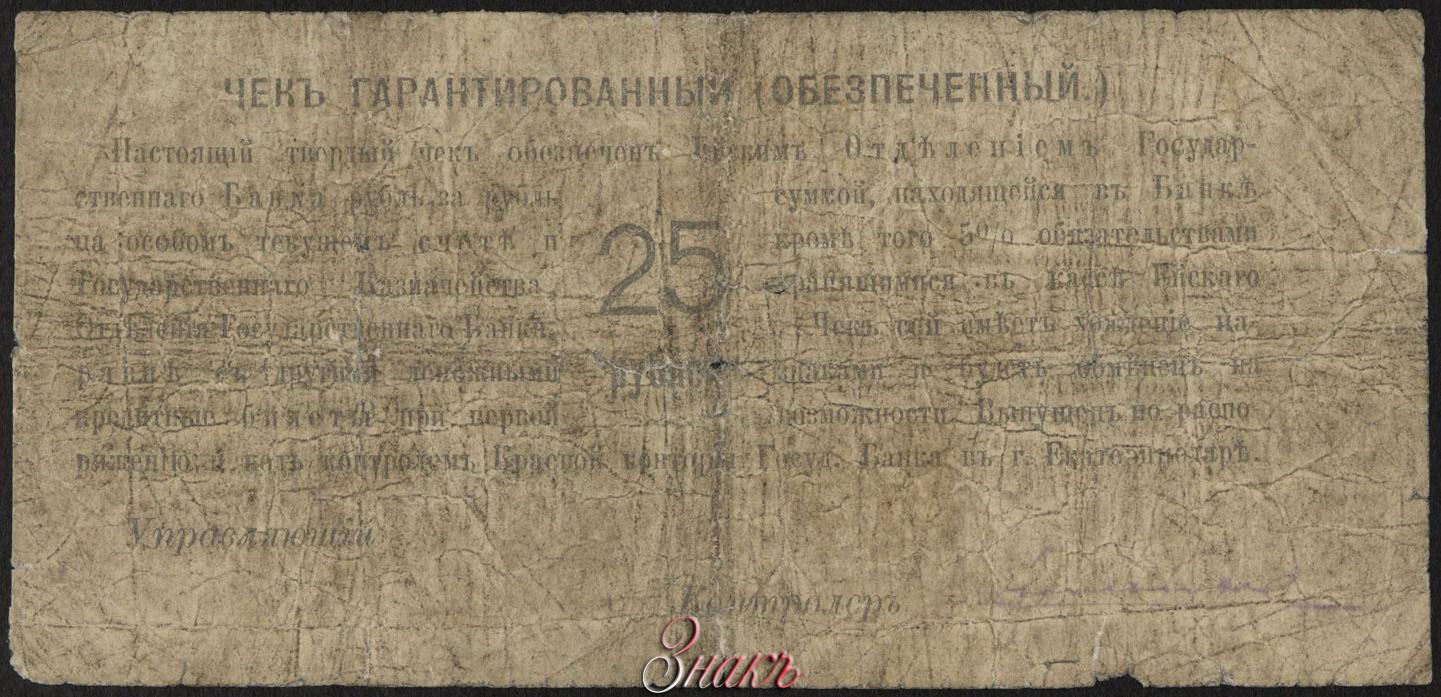 ЧЕКЪ ГАРАНТИРОВАННЫЙ (ОБЕЗПЕЧЕННЫЙ.)
Настоящій твердый чекъ обезпеченъ Ейскимъ Отдѣленіемъ Государ-
ственнаго Банка рубль за рубль суммой, находящейся въ Банкѣ
на особомъ текущемъ счетѣ и кромѣ того 5% обязательствами
Государственнаго Казначейства хранящимися въ кассѣ Ейскаго
Отдѣленія Государственнаго Банка. Чекъ сей имѣетъ хожденіе на-
равнѣ съ другими денежными знаками и будетъ обмѣненъ на
кредитные билеты при первой возможности. Выпущенъ по распо-
ряженію и подъ контролемъ Краевой конторы Госуд. Банка въ г. Екатеринодарѣ.
25
рублей
Управляющій
Контролеръ
Знакъ